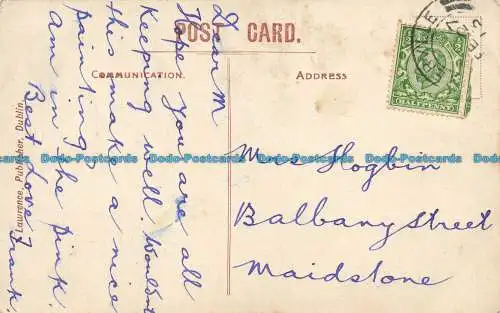 POST CARD.
COMMUNICATION.
ADDRESS
HALFPENNY
Dear M
Hope you are all
Keeping well. Wouldn't
this make a nice
painting,
Am in the pink.
Best Love
Frank.
Mrs Hogbin
Balbany Street
Maidstone
Lawrence, Publisher, Dublin.
Dodo-Postcards Dodo-Postcards Dodo-Postcards Dodo-Postcards Dodo-Postcards Dodo-Postcards